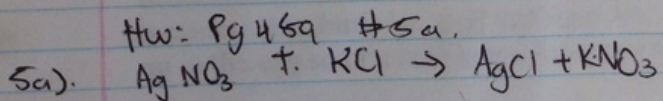 Hw: Pg 459 #5a.
5a). AgNO₃ + KCl → AgCl + KNO₃